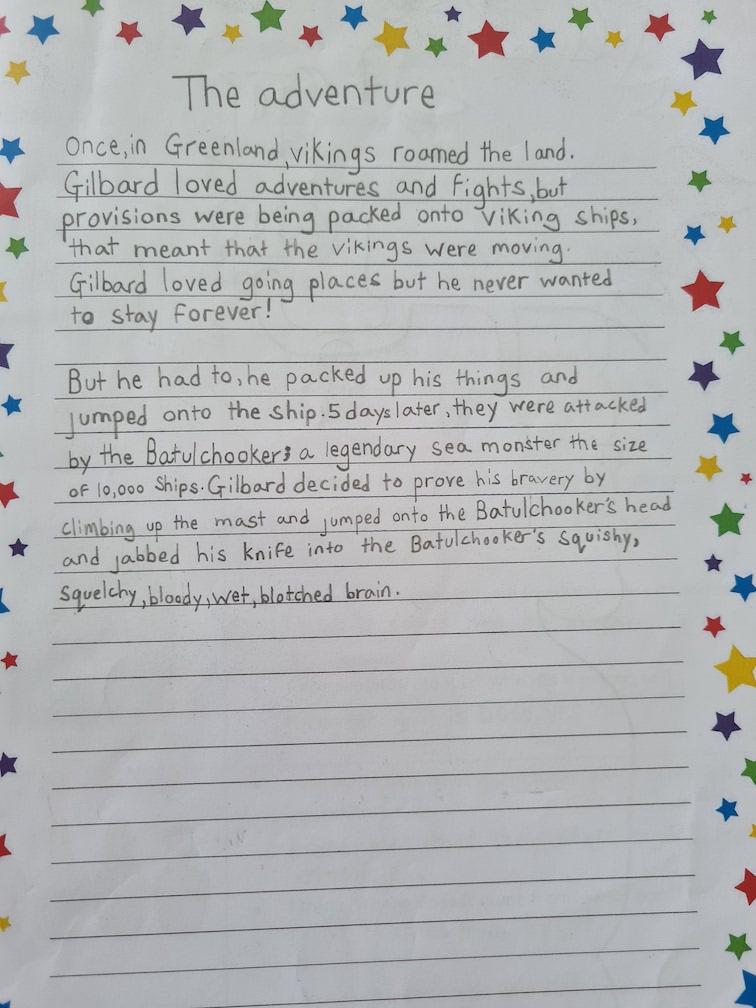 The adventure
Once, in Greenland, vikings roamed the land.
Gilbard loved adventures and fights, but
provisions were being packed onto viking ships,
that meant that the vikings were moving.
Gilbard loved going places but he never wanted
to stay forever!
But he had to, he packed up his things and
jumped onto the ship. 5 days later, they were attacked
by the Batulchooker; a legendary sea monster the size
of 10,000 ships. Gilbard decided to prove his bravery by
climbing up the mast and jumped onto the Batulchooker's head
and jabbed his knife into the Batulchooker's squishy,
squelchy, bloody, wet, blotched brain.